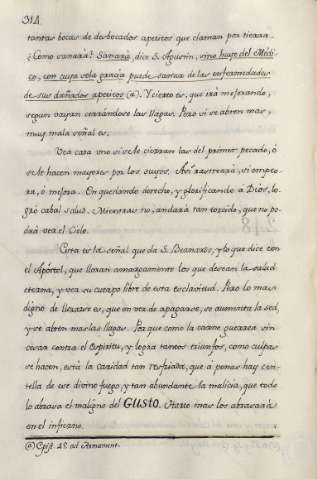 314
tantas bocas de desbocados apetitos que claman por tierra.
¿Como sanará? Sanará, dice S. Agustin, sino huye del Médi-
co, con cuya sola gracia puede sanar de las enfermedades
de sus dañados apetitos (a). Y cierto es, que irá mejorando,
segun vayan cerrandose las llagas. Pero si se abren mas,
muy mala señal es.
Vea cada uno si se le cierran las del primer pecado, ó
se le hacen mayores por los suyos. Asi rastreará, si empeo-
ra, ó mejora. En quedando derecho, y glorificando a Dios, lo-
gró cabal salud. Mientras no, andará tan torcido, que no po-
drá ver el Cielo.
Esta es la señal que da S. Bernardo, y lo que dice con
el Apóstol, que lloran amargamente los que desean la salud
eterna, y ven su cuerpo libre de esta esclavitud. Pero lo mas
digno de llorarse es, que en vez de apagarse, se aumenta la sed,
y se abren mas las llagas. Porque como la carne guerrea sin
cesar contra el Espiritu, y logra tantos triunfos, como culpas
se hacen, está la caridad tan resfriada, que á penas hay cen-
tella de este divino fuego, y tan abundante la malicia, que todo
lo abrasa el maligno del GUSTO. Harto mas los abrasará
en el infierno.
(a) Epist. 45 ad Armament.